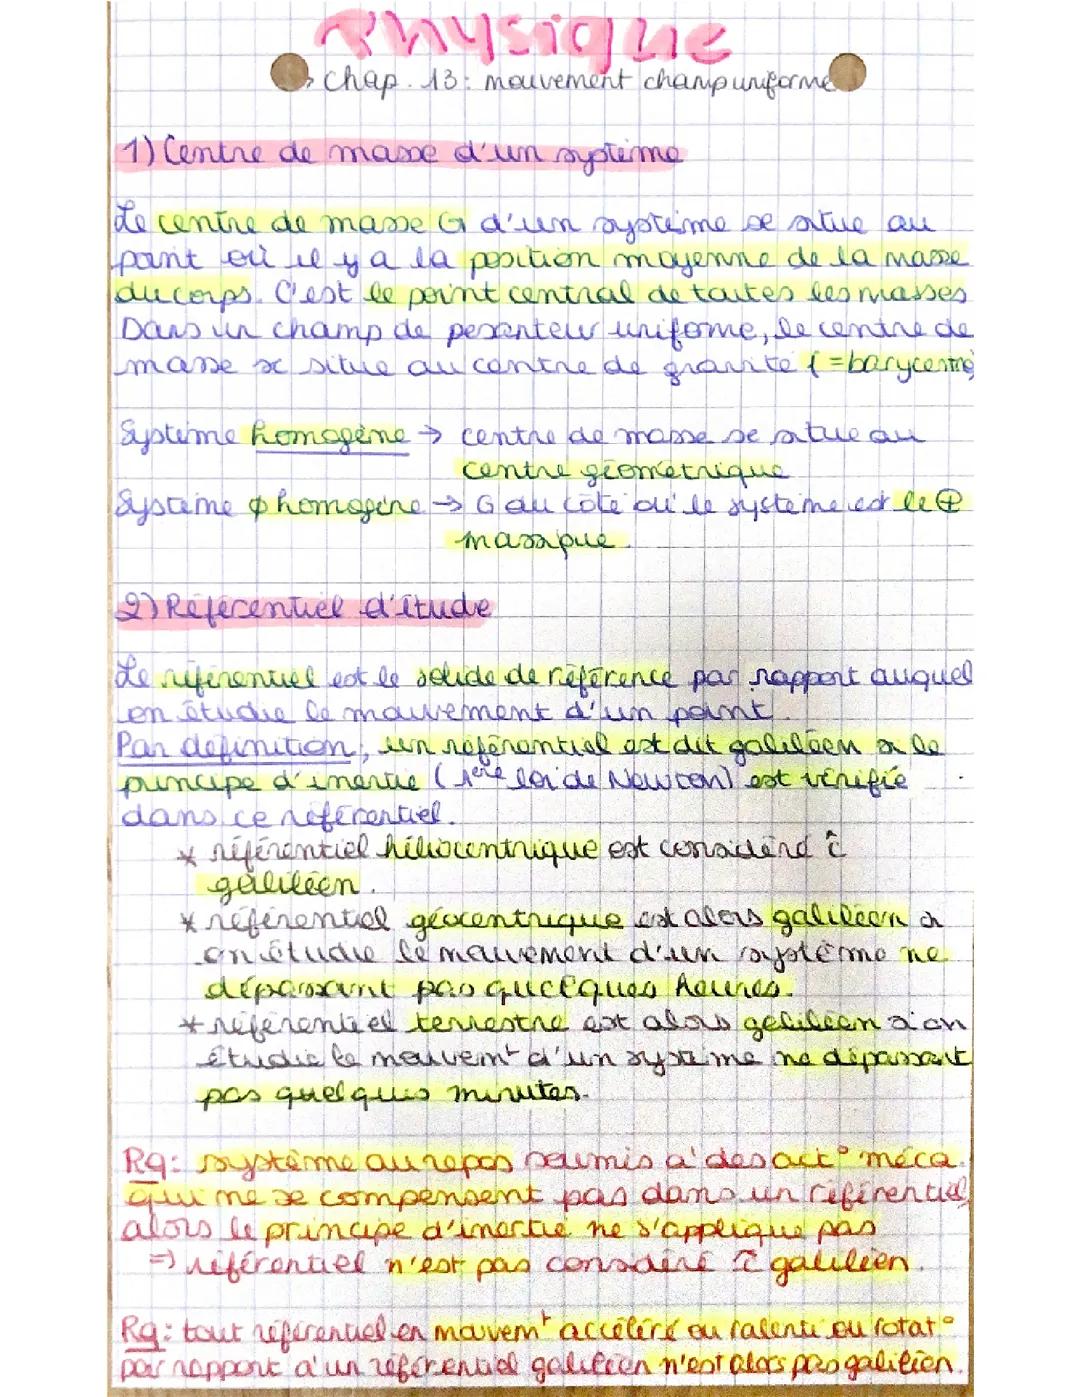 Physique
→ Chap. 13 : mouvement champ uniforme
1) Centre de masse d'un système
Le centre de masse G d'un système se situe au
point où il y a la position moyenne de la masse
du corps. C'est le point central de toutes les masses
Dans un champ de pesanteur uniforme, le centre de
masse se situe au centre de gravité (=barycentre)
Système homogène → centre de masse se situe au
centre géométrique
Système ϕ homogène → G au côté où le système est le ⊕
massique.
2) Référentiel d'étude
Le référentiel est le solide de référence par rapport auquel
on étudie le mouvement d'un point.
Par définition, un référentiel est dit galiléen si le
principe d'inertie (1ère loi de Newton) est vérifié
dans ce référentiel.
* référentiel héliocentrique est considéré ĉ
galiléen.
* référentiel géocentrique est alors galiléen si
on étudie le mouvement d'un système ne
dépassant pas quelques heures.
* référentiel terrestre est alors galiléen si on
étudie le mouvemt d'un système ne dépassant
pas quelques minutes.
Rq: système au repos soumis à des act° méca.
qui ne se compensent pas dans un référentiel,
alors le principe d'inertie ne s'applique pas
=> référentiel n'est pas considéré ĉ galiléen.
Rq: tout référentiel en mouvemt accéléré ou ralenti ou rotat°
par rapport à un référentiel galiléen n'est alors pas galiléen.